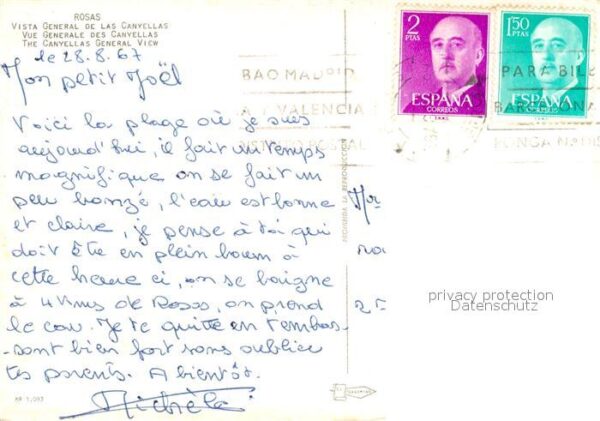 ROSAS
VISTA GENERAL DE LAS CANYELLAS
VUE GENERALE DES CANYELLAS
THE CANYELLAS GENERAL VIEW
le 28.8.67
Mon petit Joël
Voici la plage où je suis
aujourd'hui, il fait un temps
magnifique on se fait un
peu bronzé, l'eau est bonne
et claire, je pense à toi qui
doit être en plein boum à
cette heure ci, on se baigne
à 4 kms de Rosas, on prend
le car. Je te quitte en t'embras-
-sant bien fort sans oublier
tes parents. A bientôt.
Michèle
PROHIBIDA LA REPRODUCCION
2
PTAS
ESPAÑA
CORREOS
1,50
PTAS
ESPAÑA
CORREOS
BAO MADRID
VALENCIA
POSTAL
PARA BIL
BARCELONA
PONGA
privacy protection
Datenschutz